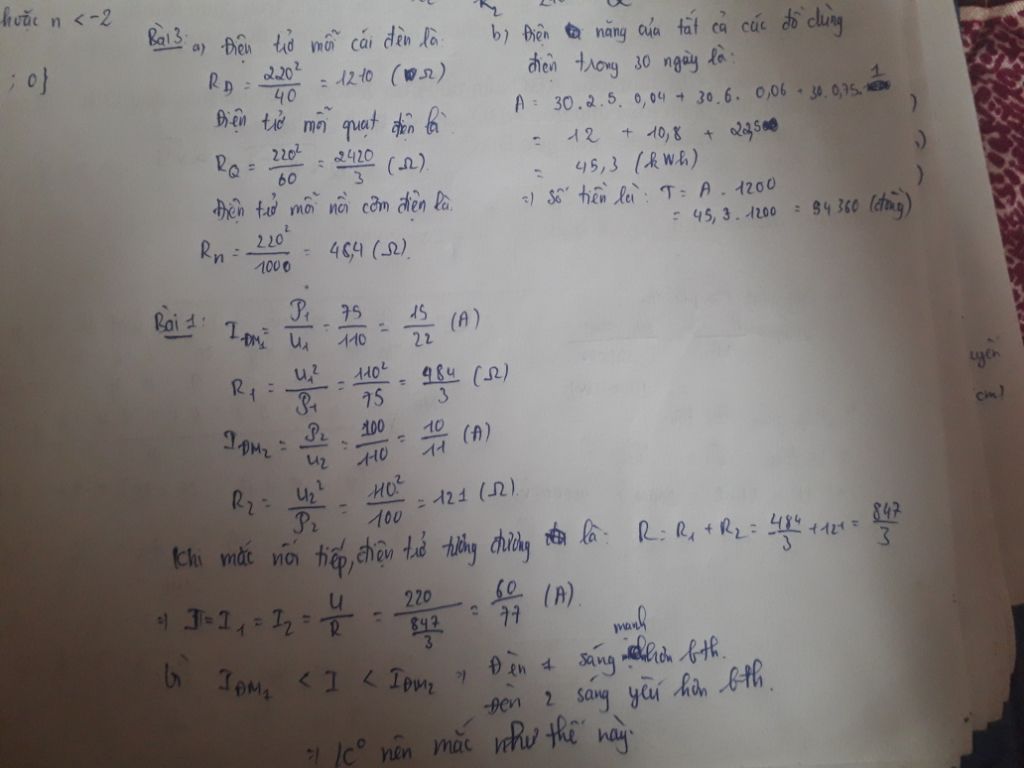 hoặc n < -2
; 0}
Bài 3: a) Điện tở mỗi cái đèn là:
R_Đ = 220²/40 = 1210 (Ω)
Điện tở mỗi quạt điện là
R_Q = 220²/60 = 2420/3 (Ω).
Điện tở mỗi nồi cơm điện là.
R_n = 220²/1000 = 48,4 (Ω).
b) Điện năng của tất cả các đồ dùng
điện trong 30 ngày là:
A = 30.2.5.0,04 + 30.6.0,06 + 30.0,75.1
= 12 + 10,8 + 22,5
= 45,3 (kWh)
=) Số tiền là: T = A.1200
= 45,3.1200 = 54360 (đồng)
Bài 1: I_ĐM1 = P1/U1 = 75/110 = 15/22 (A)
R1 = U1²/P1 = 110²/75 = 484/3 (Ω)
I_ĐM2 = P2/U2 = 100/110 = 10/11 (A)
R2 = U2²/P2 = 110²/100 = 121 (Ω).
Khi mắc nối tiếp, điện tở tương đương là: R = R1 + R2 = 484/3 + 121 = 847/3
=) I = I1 = I2 = U/R = 220/(847/3) = 60/77 (A).
Vì I_ĐM1 < I < I_ĐM2 =) Đèn 1 sáng mạnh hơn bth.
Đèn 2 sáng yếu hơn bth.
=) K° nên mắc như thế này.
cm)